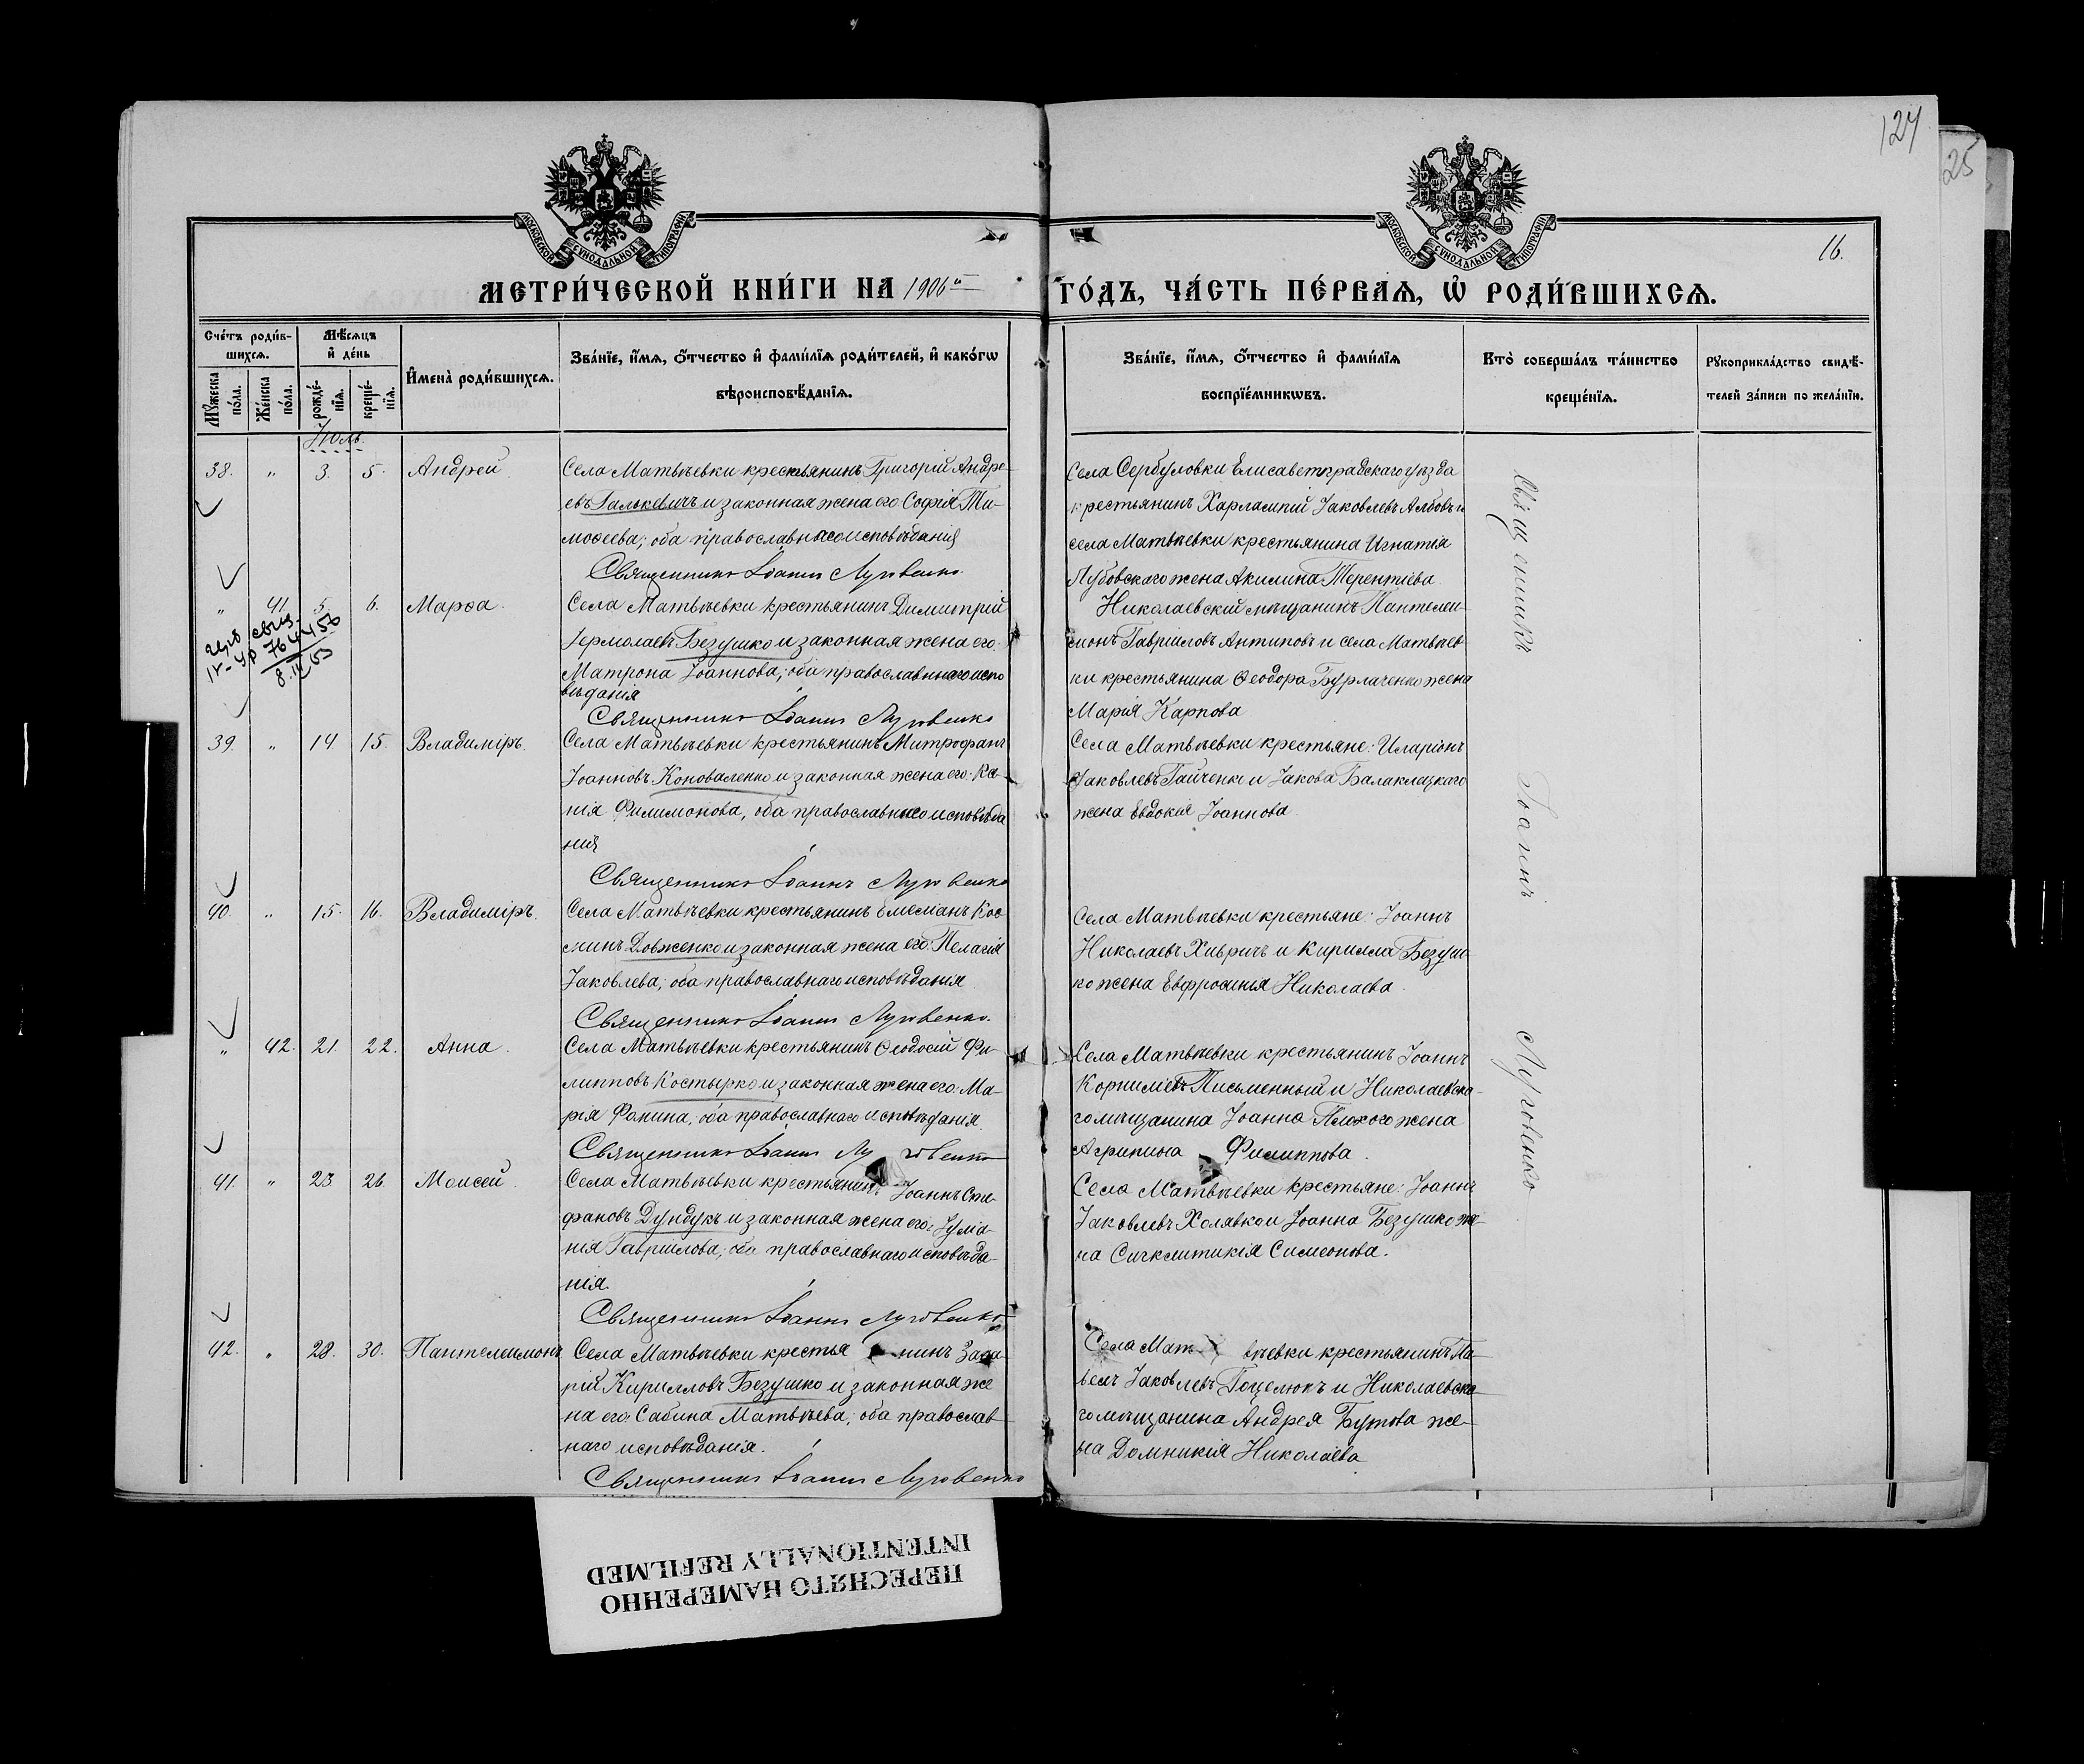 127
25
МОСКОВСКОЙ СѴНОДАЛЬНОЙ ТИПОГРАФІИ
МОСКОВСКОЙ СѴНОДАЛЬНОЙ ТИПОГРАФІИ
16.
МЕТРИ́ЧЕСКОЙ КНИ́ГИ НА 1906й
ГО́ДЪ, ЧА́СТЬ ПЕ́РВАѦ, Ѡ҆ РОДИ́ВШИХСѦ.
Сче́тъ роди́в-
шихсѧ.
Мѣ́сѧцъ
и҆ де́нь
Мꙋ́жеска
по́ла.
Же́нска
по́ла.
рожде́-
нїѧ.
креще́-
нїѧ.
И҆мена̀ роди́вшихсѧ.
Зва́нїе, и҆́мѧ, ѻ҆́тчество и҆ фами́лїѧ роди́телей, и҆ како́гѡ
вѣроисповѣ́данїѧ.
Зва́нїе, и҆́мѧ, ѻ҆́тчество и҆ фами́лїѧ
воспрїе́мникѡвъ.
Кто̀ соверша́лъ та́инство
креще́нїѧ.
Рꙋкоприкла́дство свидѣ́-
телей за́писи по жела́нїю.
Іюль.
38. " 3. 5. Андрей.
Села Матвѣевки крестьянинъ Григорій Андре-
евъ Галькевичъ и законная жена его София Ти-
моѳеева; оба православнаго исповѣданія
Священникъ Іоаннъ Луговенко.
Села Сербуловки Елисаветградскаго уѣзда
крестьянинъ Харлампій Іаковлевъ и
села Матвѣевки крестьянина Игнатія
Лубовскаго жена Акилина Терентіева
" 41. 5. 6. Марѳа.
Села Матвѣевки крестьянинъ Димитрій
Ермолаевъ Безушко и законная жена его:
Матрона Іоаннова; оба православнаго испо
вѣданія
Священникъ Іоаннъ Луговенко
Николаевскій мѣщанинъ Пантелеи-
монъ Гавріиловъ Антиповъ и села Матвѣев
ки крестьянина Ѳеодора Бурлаченко жена
Марія Карпова
39. " 14 15. Владиміръ.
Села Матвѣевки крестьянинъ Митрофанъ
Іоанновъ Коноваленко и законная жена его: Ксе-
нія Филимонова, оба православнаго исповѣда
нія
Священникъ Іоаннъ Луговенко
Села Матвѣевки крестьяне: Иларіонъ
Іаковлевъ Гайченко и Іакова Балаклицкаго
жена Евдокія Іоаннова.
40. " 15. 16. Владиміръ.
Села Матвѣевки крестьянинъ Емеліанъ Кос
минъ Довженко и законная жена его: Пелагія
Іаковлева; оба православнаго исповѣданія
Священникъ Іоаннъ Луговенко.
Села Матвѣевки крестьяне: Іоаннъ
Николаевъ Хивричъ и Кирилла Безуш-
ко жена Евфросинія Николаева.
" 42. 21. 22. Анна.
Села Матвѣевки крестьянинъ Ѳеодосій Фи-
липповъ Костырко и законная жена его: Ма-
рія Фомина, оба православнаго исповѣданія.
Священникъ Іоаннъ Луговенко
Села Матвѣевки крестьянинъ Іоаннъ
Корниліевъ Письменный и Николаевска-
го мѣщанина Іоанна Плохого жена
Агрипина Филиппова.
41. " 23 26 Моисей.
Села Матвѣевки крестьянинъ Іоаннъ Сте-
фановъ Дундукъ и законная жена его: Іулiа-
нія Гавріилова; оба православнаго исповѣда-
нія.
Священникъ Іоаннъ Луговенко
Села Матвѣевки крестьяне: Іоаннъ
Іаковлевъ Холявко и Іоанна Безушко же-
на Синклитикія Симеонова.
42. " 28. 30. Пантелеимонъ.
Села Матвѣевки крестьянинъ Заха-
рій Кирилловъ Безушко и законная же
на его: Сабина Матвѣева; оба православ-
наго исповѣданія.
Священникъ Іоаннъ Луговенко
Села Матвѣевки крестьянинъ Па-
велъ Іаковлевъ Гоцелюкъ и Николаевска-
го мѣщанина Андрея Бутова же-
на Домникія Николаева
Священникъ Іоаннъ Луговенко
ПЕРЕСНЯТО НАМЕРЕННО
INTENTIONALLY REFILMED